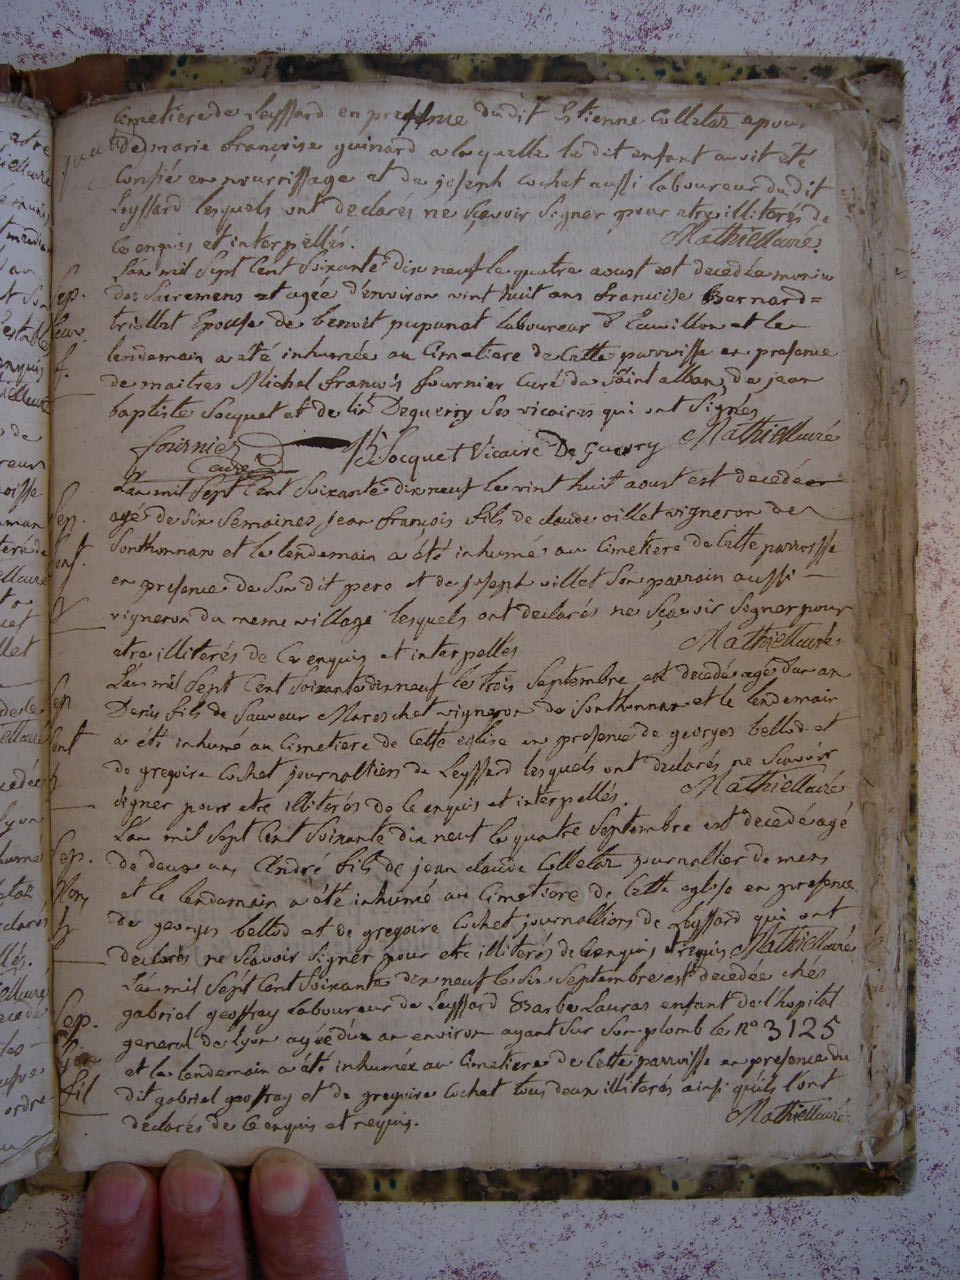 Cimetiere de Leyssard en presence dudit Etienne Colletaz epoux
de marie françoise guinard a la quelle le dit enfant avoit été
Confié en nourrissage et de joseph Cochet aussi laboureur dudit
Leyssard lesquels ont declarés ne sçavoir signer pour etre illiterés de
ce enquis et interpellés. Mathieu curé
L'an mil sept cent soixante dix neuf le quatre aoust est decedée munie
des sacremens et agée d'environ vint huit ans françoise Bernard=
triollet Epouse de benoit pupunat laboureur et le
lendemain a été inhumée au Cimetiere de Cette parroisse en presence
de maitres Michel françois fournier Curé de Saint alban, de jean
baptiste Socquet et de Deguerry ses vicaires qui ont signés
fournier Curé Socquet Vicaire De Guerry Mathieu curé
L'an mil sept Cent Soixante dix neuf le vint huit aoust est decedé
agé de six semaines jean françois fils de claude villet vigneron de
Sonthonnax et le lendemain a été inhumé au Cimetiere de Cette parroisse
en presence de son dit pere et de joseph villet son parrain aussi
vigneron du meme village lesquels ont declarés ne sçavoir signer pour
etre illiterés de Ce enquis et interpellés Mathieu curé
L'an mil sept Cent Soixante dix neuf le trois Septembre est decedé agé d'un an
Denis fils de Sauveur Mareschet vigneron de Sonthonnax et le lendemain
a été inhumé au Cimetiere de Cette eglise en presence de georges bellod et
de gregoire Cochet journalliers de Leyssard lesquels ont declarés ne Scavoir
signer pour etre illiterés de Ce enquis et interpellés. Mathieu curé
L'an mil sept Cent Soixante dix neuf le quatre Septembre est decedé agé
de deux ans André fils de jean claude Colletaz journallier de mens
et le lendemain a été inhumé au Cimetiere de Cette eglise en presence
de georges bellod et de gregoire Cochet journalliers de Leyssard qui ont
declarés ne Scavoir signer pour etre illiterés de Ce enquis et requis Mathieu curé
L'an mil sept Cent Soixante dix neuf le six Septembre est decedée chés
gabriel geoffray laboureur de Leyssard enfant de l'hopital
general de lyon agée d'un an environ ayant sur son plomb le n° 3125
et le lendemain a été inhumée au Cimetiere de Cette parroisse en presence du
dit gabriel geoffray et de gregoire Cochet tous deux illiterés ainsi qu'ils l'ont
declarés de Ce enquis et requis. Mathieu curé